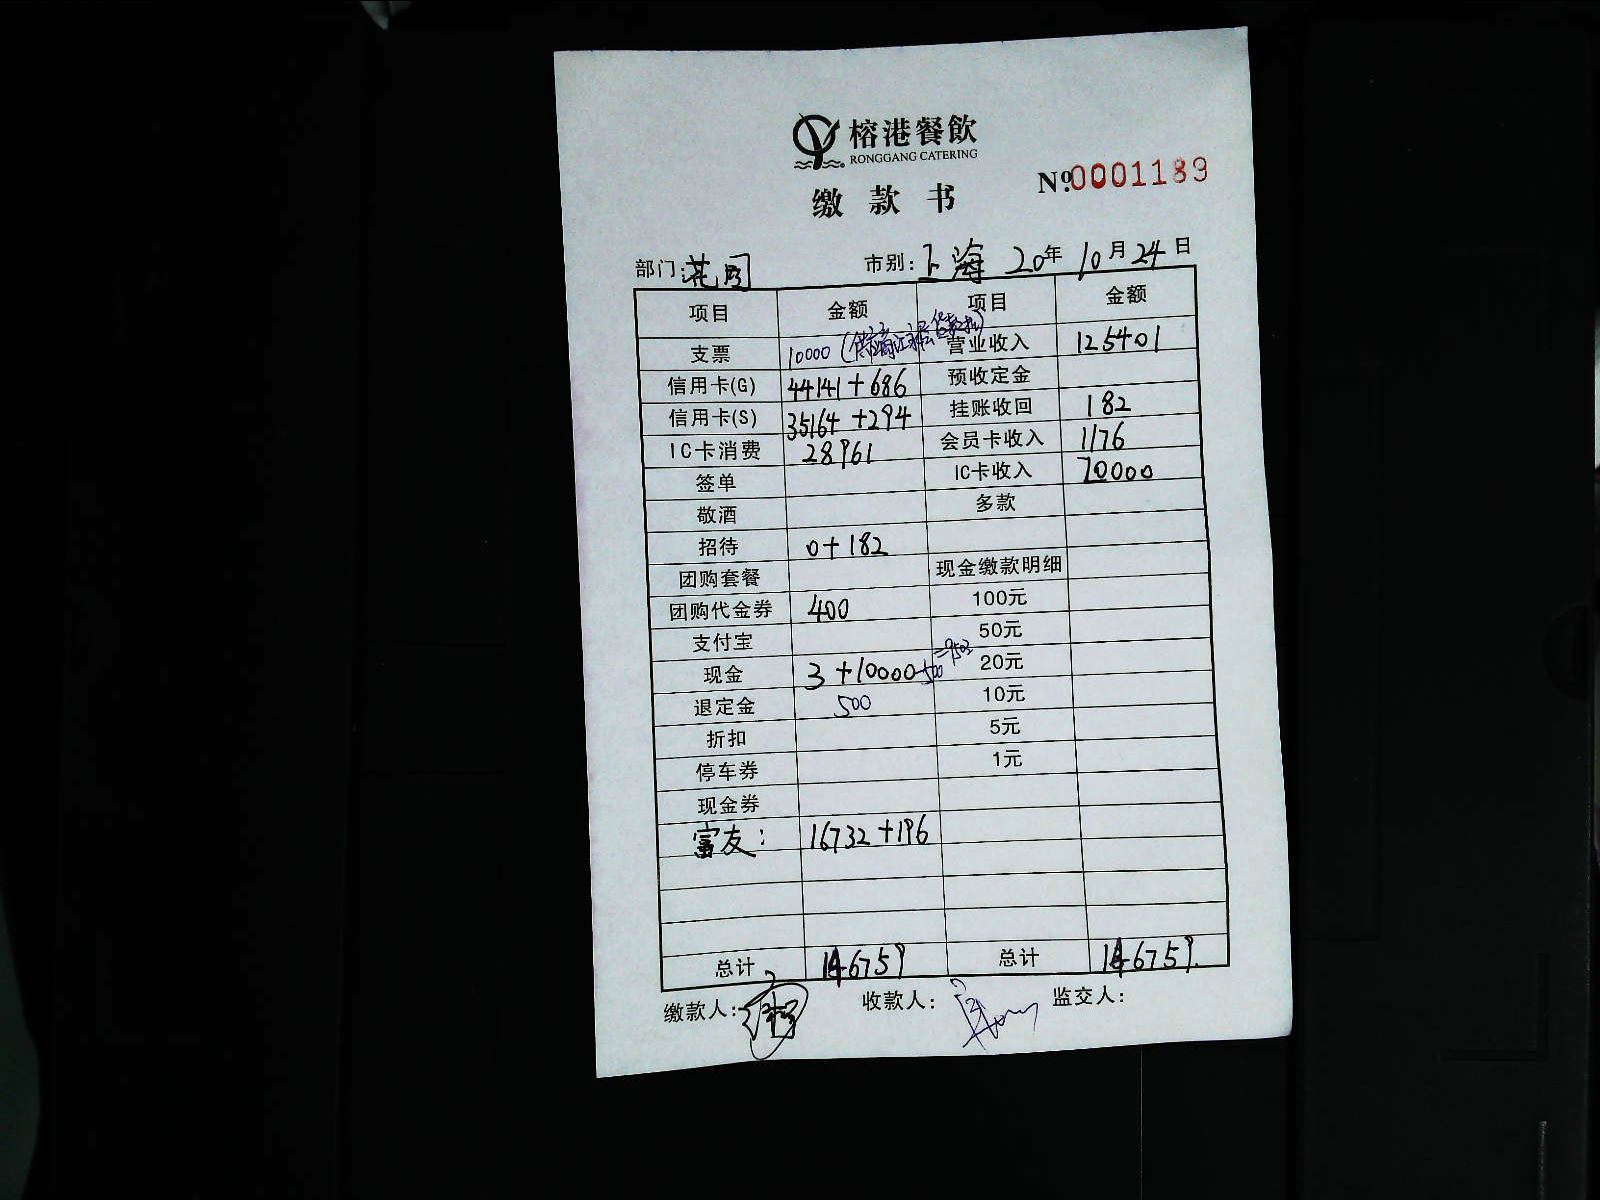 榕港餐飲
RONGGANG CATERING
缴款书
Nº.0001189
部门: 市别:上海 20年10月24日
项目 金额 项目 金额
支票 10000 营业收入 125401
信用卡(G) 44141+686 预收定金
信用卡(S) 35164+294 挂账收回 182
IC卡消费 28961 会员卡收入 1176
签单 IC卡收入 20000
敬酒 多款
招待 0+182
团购套餐 现金缴款明细
团购代金券 400 100元
支付宝 50元
现金 3+10000-500=9503 20元
退定金 500 10元
折扣 5元
停车券 1元
现金券
富友: 16732+196
总计 146759 总计 146759.
缴款人: 收款人: 监交人: